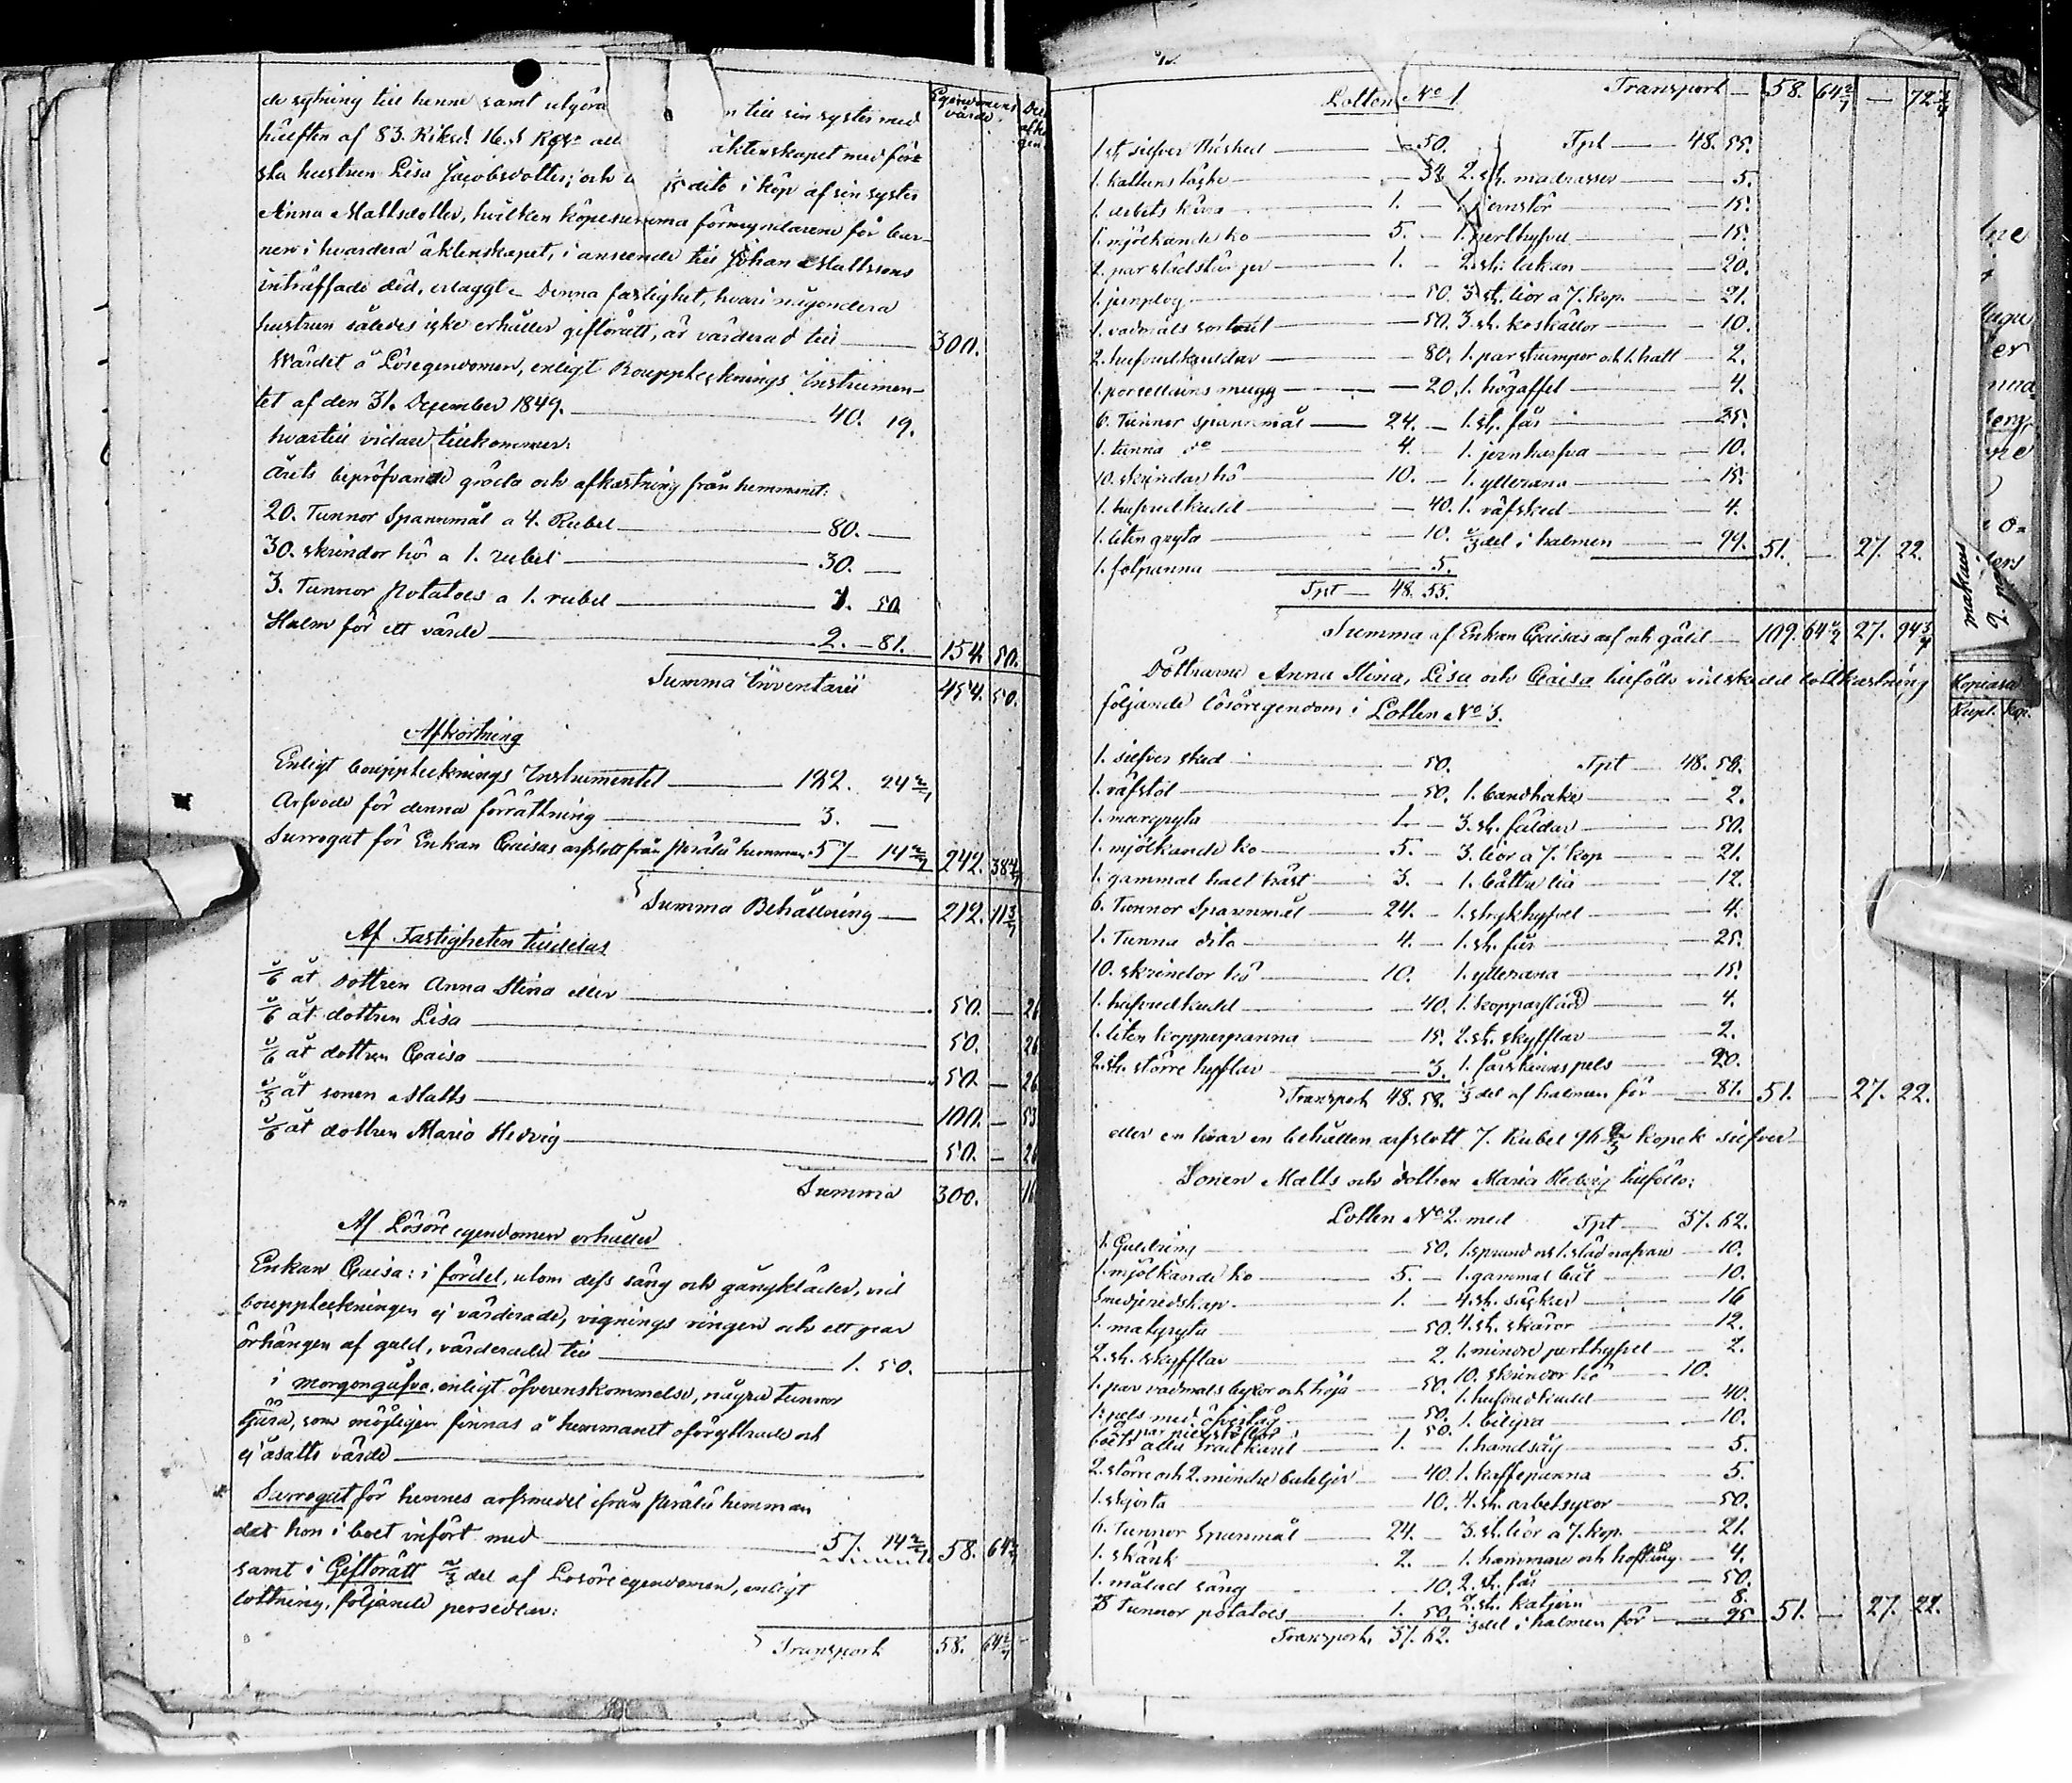 Egendomens värde
de sytning till henne samt utgöra n till sin syster med
hälften af 83. Riksd. 16. s Rgs äktenskapet med för-
sta hustrun Lisa Jacobsdotter; och dito i köp af sin syster
Anna Mattsdotter, hvilken köpesumma förmyndarene för bar-
nen i hvardera äktenskapet, i anseende till Johan Mattssons
inträffade död, erlaggt. Denna fastighet, hvari någondera
hustrun således icke erhåller giftorätt, är värderad till 300.
Wärdet å Lösegendomen, enligt Bouppteknings Instrumen-
tet af den 31. December 1849. 40. 19.
hvartill vidare tillkommer.
Årets bepröfvande gröda och afkastning från hemmanet:
20. Tunnor Spannmål a 4. Rubel 80. —
30. skrindor hö a 1. rubel 30. —
3. Tunnor Potatoes a 1. rubel 3. 50
Halm för ett värde 2. 81. 154. 50.
Summa Inventarii 454. 50.
Afkortning
Enligt bouppteknings Instrumentet 182. 24 2/7
Arfvode för denna förrättning 3. —
Surrogat för Enkan Caisas arfslott från Perälä hemman 57. 14 2/7 242. 38 4/7
Summa Behållning — 212. 11 3/7
Af Fastigheten tilldelas
1/6 åt dottren Anna Stina eller 50. — 26
1/6 åt dottren Lisa 50. 26
1/6 åt dottren Caisa 50. — 26
1/3 åt sonen Matts 100. — 53
1/6 åt dottren Maria Hedvig 50. — 26
Summa 300.
Af Lösöre egendomen erhåller
Enkan Caisa: i fördel, utom dess säng och gångkläder, vid
bouppteckningen ej värderade, vignings ringen och ett par
örhängen af guld, värderade till 1. 50.
i morgongåfva enligt öfverenskommelse, några tunnor
tjära, som möjligen finnas å hemmanet oföryttrade och
ej åsatts värde
Surrogat för hennes arfsmedel ifrån Perälä hemman
det hon i boet infört med 57. 14 2/7 58. 64 2/7
samt i Giftorätt 1/3 del af Lösöre egendomen, enligt
lottning, följande persedlar:
Transport 58. 64 2/7
Lotten No 1 Transport — 58. 64 2/7 — 72 3/7
1. st silfver thésked — 50. Tpt — 48. 55.
1. kattuns täcke 2. st. madrasser — 5.
1. arbets kärra 1. — 1. jernstör — 15.
1. mjölkande ko 5. — 1. perlhyfvel — 15.
1. 2. st. lakan — 20.
1. jernplog — 50. 3 st. lior a 7. kop. — 21.
1. vadmals — 50. 3. st. koskällor — 10.
2. hufvudkuddar — 80. 1. par strumpor och 1. hatt — 2.
1. porcellains mugg — 20. 1. högaffel — 4.
6. Tunnor spannmål — 24. — 1. st. får — 25.
1. tunna do 4. — 1. jernharfva — 10.
10. skrindor hö 10. — 1. ytterana — 15.
1. hufvudkudd — 40. 1. räfsked — 4.
1. liten gryta — 10. 1/3 del i halmen — 99. 51. — 27. 22.
1. folpanna — 5.
Tpt — 48. 55.
Summa af Enkan Caisas arf och gäld — 109. 64 2/7 27. 94 3/7
Döttrarne Anna Stina, Lisa och Caisa tillföllo vid skedd lottkastning
följande lösöregendom i Lotten No 3.
1. silfver sked — 50. Tpt — 48. 58.
1. räfstol — 50. 1. bandhake — 2.
1. murgryta 1. — 3. st. fällar — 50.
1. mjölkande ko 5. — 3. lior a 7. kop — 21.
1. gammal halt häst 3. — 1. lia — 12.
6. Tunnor Spannmål 24. — 1. strykhyfvel — 4.
1. Tunna dito 4. — 1. st. får — 25.
10. skrindor hö 10. 1. ytterana — 15.
1. hufvudkudd — 40. 1. kopparflär — 4.
1. liten kopparpanna — 15. 2. st. skyfflar — 2.
2. st. större hyfflar — 3. 1. fårskinns pels — 20.
Transport 48. 58. 1/3 del af halmen för — 81. 51. — 27. 22.
eller en hvar en behållen arfslott 7. Rubel 96 2/3 kopek silfver
Sonen Matts och dottren Maria Hedvig tillföllo;
Lotten No 2 med Tpt — 37. 62.
1. Guldring — 50. 1. sprund och 1. städ nafvare — 10.
1. mjölkande ko 5. — 1. gammal båt — 10.
Smedjeredskap 1. — 4. st. säckar — 16
1. matgryta — 50. 4. st. skäror — 12.
2. st. skyfflar — 2. 1. mindre perlhyfvel — 2.
1. par vadmals byxor och tröja — 50. 10. skrindor hö — 10.
1. pels med öfverslag — 50. 1. hufvudkudd — 40.
1. bilyxa — 10.
boets alla trädkäril 1. — 1. handsåg — 5.
2. större och 2. mindre buteljer — 40. 1. kaffepanna — 5.
1. skjorta 10. 4. st. arbetsyxor — 50.
6. tunnor Spannmål 24. — 3. st. lior a 7. kop. — 21.
1. skänk 2. — 1. hammare och hoftång — 4.
1. målad säng 10. 2. st. får — 50.
tunnor potatoes 1. 50. 2. st. katjern — 8.
Transport, 37. 62. 1/3 del i halmen för — 95 51. — 27. 22.